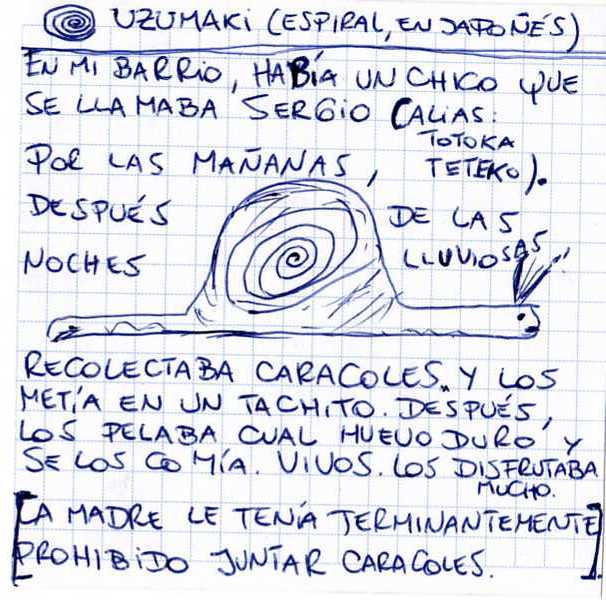 UZUMAKI (ESPIRAL, EN JAPOÑÉS)
EN MI BARRIO, HABÍA UN CHICO QUE
SE LLAMABA SERGIO (ALIAS:
TOTOKA
TETEKO).
POR LAS MAÑANAS,
DESPUÉS DE LAS
NOCHES LLUVIOSAS
RECOLECTABA CARACOLES. Y LOS
METÍA EN UN TACHITO. DESPUÉS,
LOS PELABA CUAL HUEVO DURO Y
SE LOS COMÍA. VIVOS. LOS DISFRUTABA
MUCHO.
[LA MADRE LE TENÍA TERMINANTEMENTE
PROHIBIDO JUNTAR CARACOLES.]